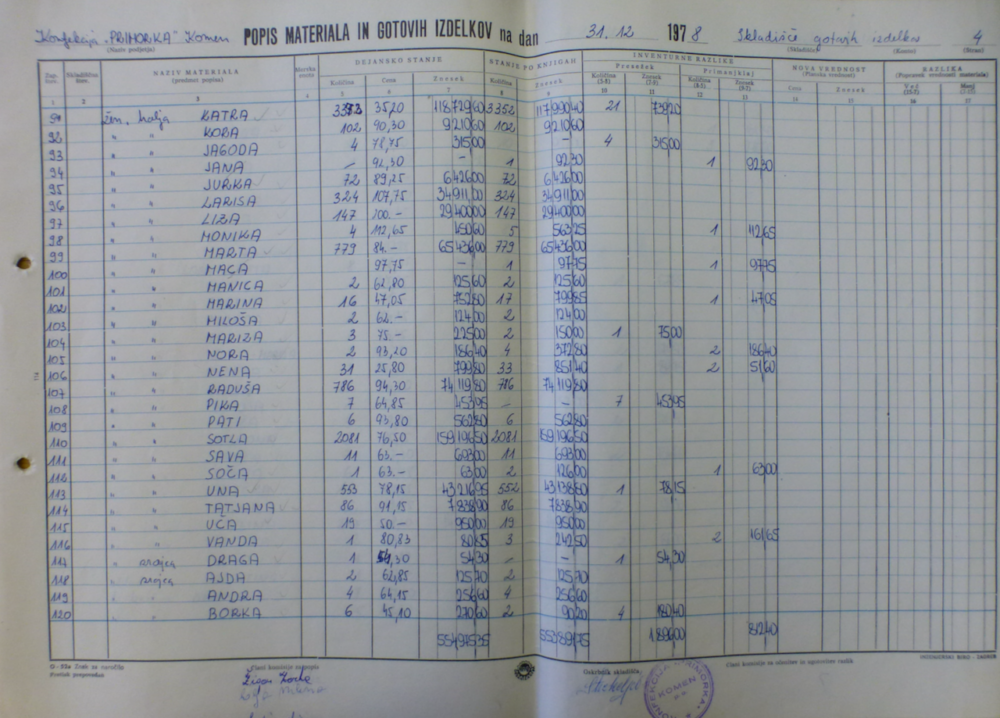 Konfekcija "PRIMORKA" Komen POPIS MATERIALA IN GOTOVIH IZDELKOV na dan 31.12 1978 Skladišče gotovih izdelkov 4
(Naziv podjetja) (Skladišče) (Konto) (Stran)
Zap. štev. Skladiščna štev. NAZIV MATERIALA (predmet popisa) Merska enota DEJANSKO STANJE STANJE PO KNJIGAH INVENTURNE RAZLIKE NOVA VREDNOST RAZLIKA
Presežek Primanjkljaj
Količina Cena Znesek Količina Znesek Količina Znesek Količina Znesek Cena Znesek Več Manj
1 2 3 4 5 6 7 8 9 10 11 12 13
91 žen. halja KATRA 3373 35,20 118.729 60 3352 117.990 40 21 739 20
92 " " KOBA 102 90,30 9.210 60 102 9.210 60
93 " " JAGODA 4 78,75 315 00 4 315 00
94 " " JANA - 92,30 - 1 92 30 1 92 30
95 " " JURKA 72 89,25 6.426 00 72 6.426 00
96 " " LARISA 324 107,75 34.911 00 324 34.911 00
97 " " LIZA 147 200.- 29.400 00 147 29.400 00
98 " " MONIKA 4 112,65 450 60 5 563 25 1 112 65
99 " " MARTA 779 84.- 65.436 00 779 65.436 00
100 " " MACA 97,75 - 1 97 75 1 97 75
101 " " MANICA 2 62,80 125 60 2 125 60
102 " " MARINA 16 47,05 752 80 17 799 85 1 47 05
103 " " MILOŠA 2 62.- 124 00 2 124 00
104 " " MARIZA 3 75.- 225 00 2 150 00 1 75 00
105 " " NORA 2 93,20 186 40 4 372 80 2 186 40
106 " " NENA 31 25,80 799 80 33 851 40 2 51 60
107 " " RADUŠA 786 94,30 74.119 80 786 74.119 80
108 " " PIKA 7 64,85 453 95 - - 7 453 95
109 " " PATI 6 93,80 562 80 6 562 80
110 " " SOTLA 2081 76,50 159.196 50 2081 159.196 50
111 " " SAVA 11 63.- 693 00 11 693 00
112 " " SOČA 1 63.- 63 00 2 126 00 1 63 00
113 " " UNA 553 78,15 43.216 95 552 43.138 80 1 78 15
114 " " TATJANA 86 91,15 7.838 90 86 7.838 90
115 " " UČA 19 50.- 950 00 19 950 00
116 " " VANDA 1 80,83 80 85 3 242 50 2 161 65
117 " srajca DRAGA 1 54,30 54 30 - - 1 54,30
118 " srajca AJDA 2 62,85 125 70 2 125 70
119 " " ANDRA 4 64,15 256 60 4 256 60
120 " " BORKA 6 45,10 270 60 2 90 20 4 180 40
1.896 00 812 40
Člani komisije za popis Oskrbnik skladišča Člani komisije za odobritev in ugotovitev razlik
KONFEKCIJA PRIMORKA KOMEN